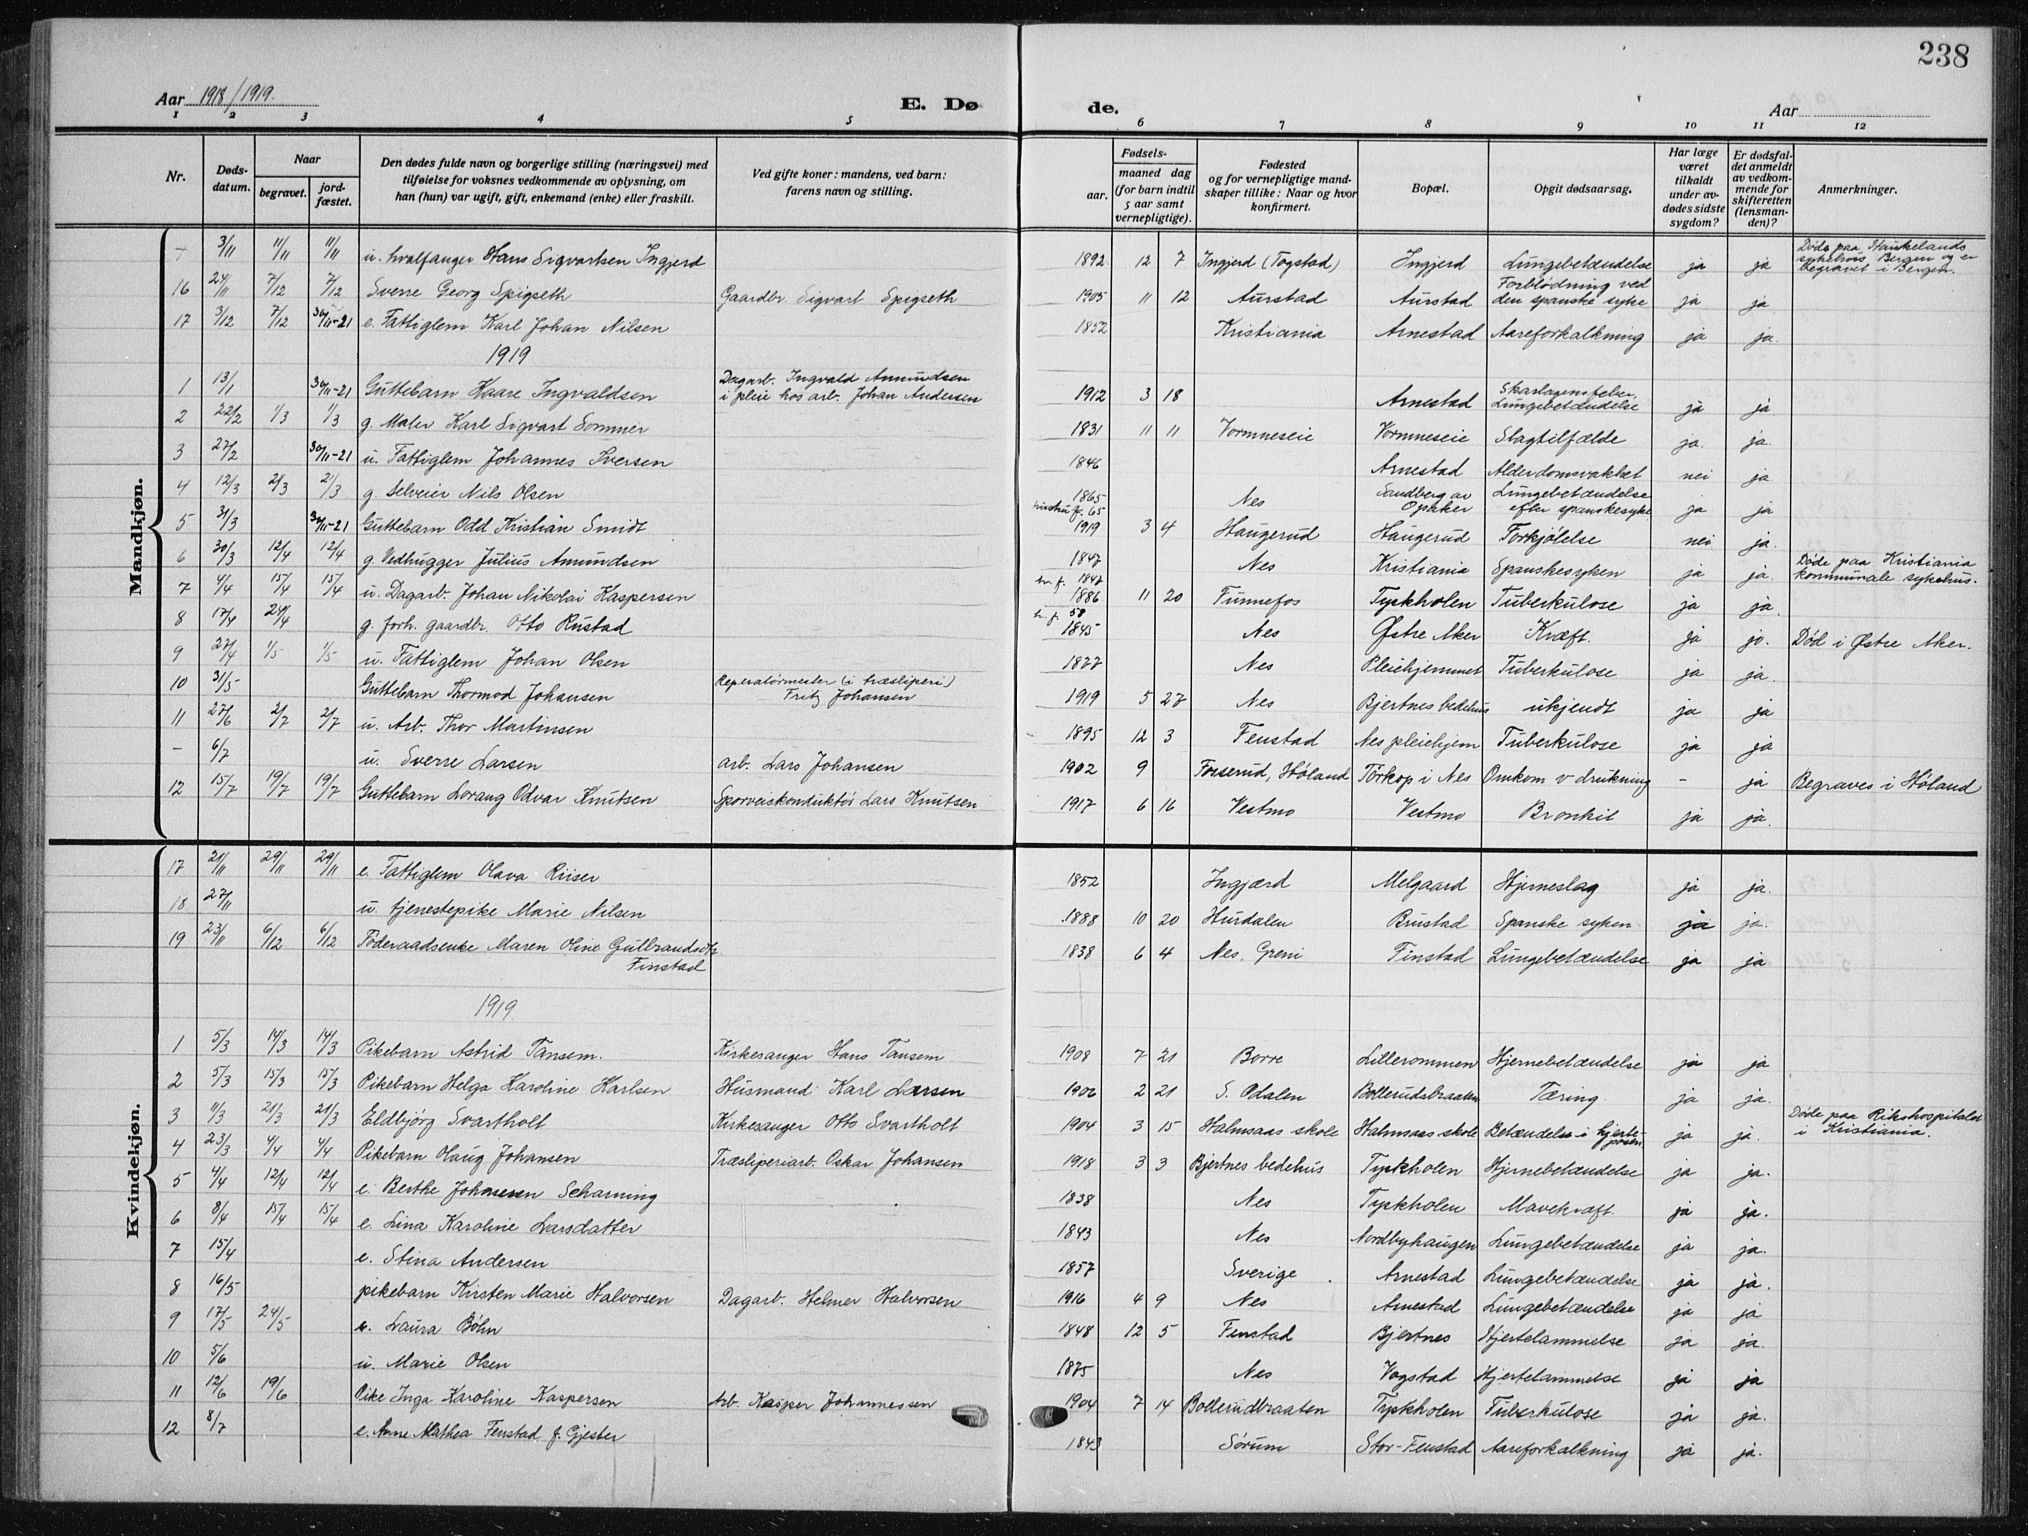 238
Aar 1918/1919.
E. Dø de.
Aar
1 2 3 4 5 6 7 8 9 10 11 12
Nr.
Døds-datum.
Naar
begravet.
jord-fæstet.
Den dødes fulde navn og borgerlige stilling (næringsvei) med
tilføielse for voksnes vedkommende av oplysning, om
han (hun) var ugift, gift, enkemand (enke) eller fraskilt.
Ved gifte koner: mandens, ved barn:
farens navn og stilling.
Fødsels-
aar. maaned dag
(for barn indtil
5 aar samt
vernepligtige).
Fødested
og for vernepligtige mand-
skaper tillike: Naar og hvor
konfirmert.
Bopæl.
Opgit dødsaarsag.
Har læge
været
tilkaldt
under av-
dødes sidste
sygdom?
Er dødsfal-
det anmeldt
av vedkom-
mende for
skifteretten
(lensman-
den)?
Anmerkninger.
Mandkjøn.
- 3/11 11/11 11/11 u. hvalfanger Hans Sigvartsen Ingjerd 1892 12 7 Ingjerd (Togstad) Ingjerd Lungebetændelse ja ja Døde paa Haukelands sykehus Bergen og er begravet i Bergen.
16 24/11 7/12 7/12 Sverre Georg Spigseth Gaardbr. Sigvart Spigseth 1905 11 12 Aurstad Aurstad Forblødning ved den spanske syke ja ja
17 3/12 7/12 30/11-21 e. Fattiglem Karl Johan Nilsen 1852 Kristiania Arnestad Aareforkalkning ja ja.
1919
1 13/1 30/11-21 Guttebarn Kaare Ingvaldsen Dagarb. Ingvald Amundsen i pleie hos arb. Johan Andersen 1912 3 18 Arnestad Skarlagensfeber, Lungebetændelse ja ja
2 22/2 1/3 1/3 g. Maler Karl Sigvart Sommer 1831 11 11 Vormneseie Vormneseie Slagtilfælde ja. ja.
3 27/2 30/11-21 u. Fattiglem Johannes Iversen 1846 Arnestad Alderdomsvakhet nei ja
4 12/3 21/3 21/3 g. Selveier Nils Olsen 1865 hustru f. 65 Nes Sandberg av Opaker Lungebetændelse efter spanskesyke ja ja
5 31/3 30/11-21 Guttebarn Odd Kristian Smidt 1919 3 4 Haugerud Haugerud Forkjølelse nei ja.
6 30/3 12/4 12/4 g. Vedhugger Julius Amundsen 1847 h. f. 1847 Nes Kristiania Spanskesyken ja ja. Døde paa Kristiania kommunale sykehus.
7 4/4 15/4 15/4 u. Dagarb. Johan Nikolai Kaspersen 1886 11 20 Funnefos Tyskholen Tuberkulose ja ja.
8 17/4 24/4 g. forh. gaardbr. Otto Rustad h. f. 58 1845 Nes Østre Aker Kræft. ja jo. Død i Østre Aker.
9 27/4 1/5 1/5 u. Fattiglem Johan Olsen 1877 Nes Pleiehjemmet Tuberkulose ja ja.
10 31/5 Guttebarn Thormod Johansen Reperatørmester (i træsliperi) Fritz Johansen 1919 5 27 Nes Bjertnes bedehus ukjendt ja ja
11 27/6 2/7 2/7 u. Arb. Thor Martinsen 1895 12 3 Fenstad Nes pleiehjem Tuberkulose ja ja
- 6/7 u. Sverre Larsen arb. Lars Johansen 1902 9 Fosserud, Høland Tørkop i Nes Omkom v drukning - ja Begraves i Høland
12 15/7 19/7 19/7 Guttebarn Lorang Odvar Knutsen Sporveiskonduktør Lars Knutsen 1917 6 16 Vestmo Vestmo Bronkit ja ja.
Kvindekjøn.
17 21/11 29/11 29/11 e. Fattiglem Olava Riiser 1852 Ingjærd Melgaard Hjerneslag ja ja.
18 27/11 u. tjenestepike Marie Nilsen 1888 10 20 Hurdalen Brustad Spanske syken ja ja.
19 23/11 6/12 6/12 Føderaadsenke Maren Oline Gulbrandsdtr Finstad 1838 6 4 Nes, Greni Finstad Lungebetændelse ja ja
1919
1 5/3 14/3 14/3 Pikebarn Astrid Tansem. Kirkesanger Hans Tansem 1908 7 21 Borre Lillerommen Hjernebetændelse ja ja
2 5/3 15/3 15/3 Pikebarn Helga Karoline Karlsen Husmand Karl Larsen 1906 2 21 S. Odalen Bollerudsbraaten Tæring ja ja.
3 11/3 21/3 21/3 Eldbjørg Svartholt Kirkesanger Otto Svartholt 1904 3 15 Halmsaas skole Halmsaas skole Betændelse i hjerteposen ja ja. Døde paa Rikshospitalet i Kristiania.
4 23/3 4/4 4/4 Pikebarn Olaug Johansen Træsliperiarb. Oskar Johansen 1918 3 3 Bjertnes bedehus Tyskholen Hjernebetændelse ja ja.
5 4/4 12/4 12/4 e. Berthe Johannesen Scharning 1838 Nes Tyskholen Mavekræft. ja ja.
6 8/4 15/4 15/4 e. Lina Karoline Larsdatter 1843 Nes Nordbyhaugen Lungebetændelse ja ja.
7 15/4 e. Stina Andersen 1857 Sverige Arnestad Lungebetændelse ja ja.
8 16/5 pikebarn Kirsten Marie Halvorsen Dagarb. Helmer Halvorsen 1916 4 9 Nes Arnestad Lungebetændelse ja ja
9 17/5 24/5 Laura Bøhn 1848 12 5 Fenstad Bjertnes Hjertelammelse ja ja.
10 5/6 u. Marie Olsen 1875 Nes Vogstad Hjertelammelse ja ja
11 12/6 19/6 Pike Inga Karoline Kaspersen Arb. Kasper Johannessen 1904 7 14 Bollerudbraaten Tyskholen Tuberkulose ja ja.
12 8/7 e. Anne Mathea Fenstad f. Gjester 1843 Sørum Stor-Fenstad Aareforkalkning ja ja.